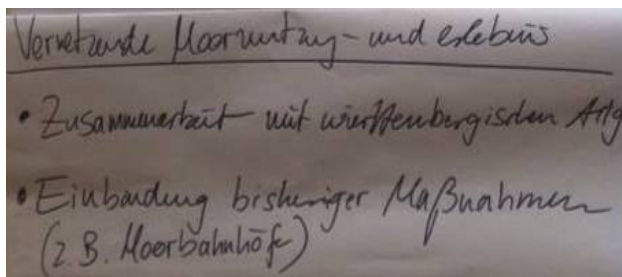 Vernetzende Moornutzung - und erlebnis
• Zusammenarbeit mit württenbergischen
• Einbindung bisheriger Maßnahmen
(z.B. Moorbahnhöfe)